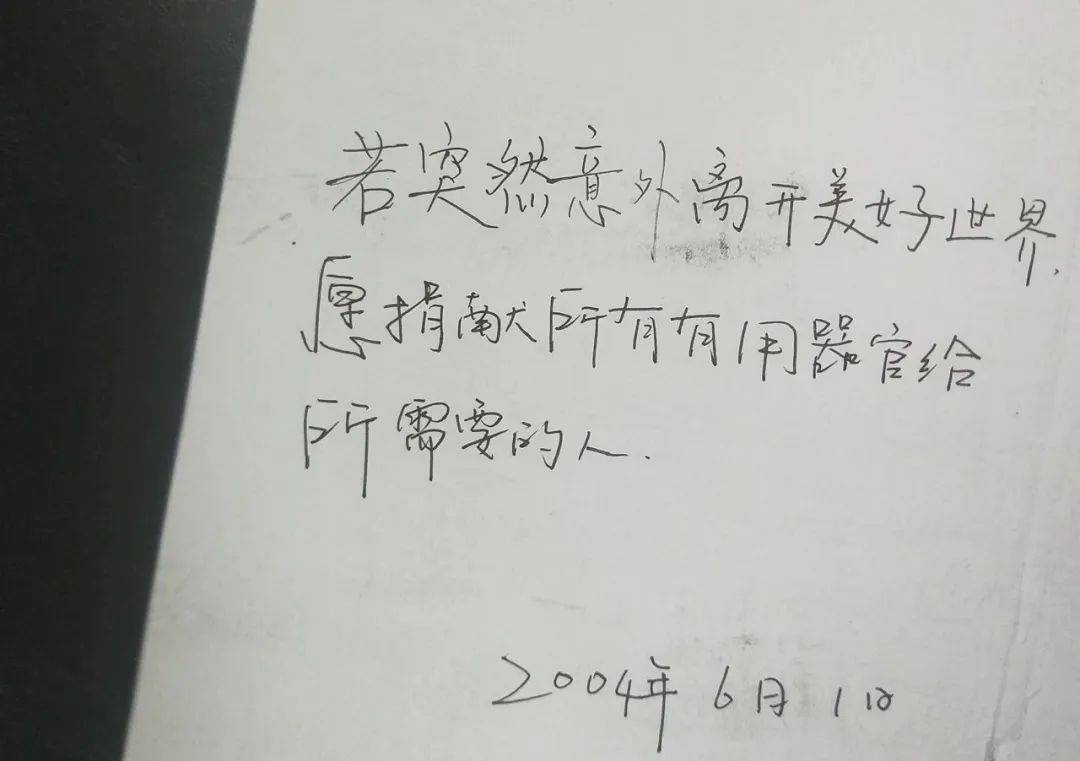 若突然意外离开美好世界.
愿捐献所有有用器官给
所需要的人.
2004年6月1日